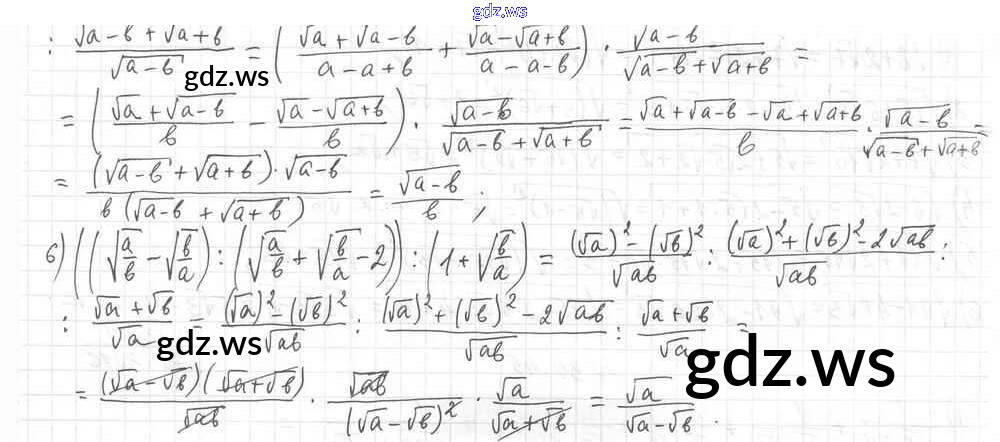 gdz.ws
: (√(a-b) + √(a+b))/√(a-b) = ((√a + √(a-b))/(a-a+b) + (√a - √(a+b))/(a-a-b)) · √(a-b)/(√(a-b) + √(a+b)) =
gdz.ws
= ((√a + √(a-b))/b - (√a - √(a+b))/b) · √(a-b)/(√(a-b) + √(a+b)) = (√a + √(a-b) - √a + √(a+b))/b · √(a-b)/(√(a-b) + √(a+b)) =
= ((√(a-b) + √(a+b)) · √(a-b))/(b(√(a-b) + √(a+b))) = √(a-b)/b;
б) ((√(a/b) - √(b/a)) : (√(a/b) + √(b/a) - 2)) : (1 + √(b/a)) = ((√a)² - (√b)²)/√ab : ((√a)² + (√b)² - 2√ab)/√ab :
: (√a + √b)/√a = ((√a)² - (√b)²)/√ab : ((√a)² + (√b)² - 2√ab)/√ab : (√a + √b)/√a =
gdz.ws
gdz.ws
= ((√a - √b)(√a + √b))/√ab · √ab/(√a - √b)² · √a/(√a + √b) = √a/(√a - √b).